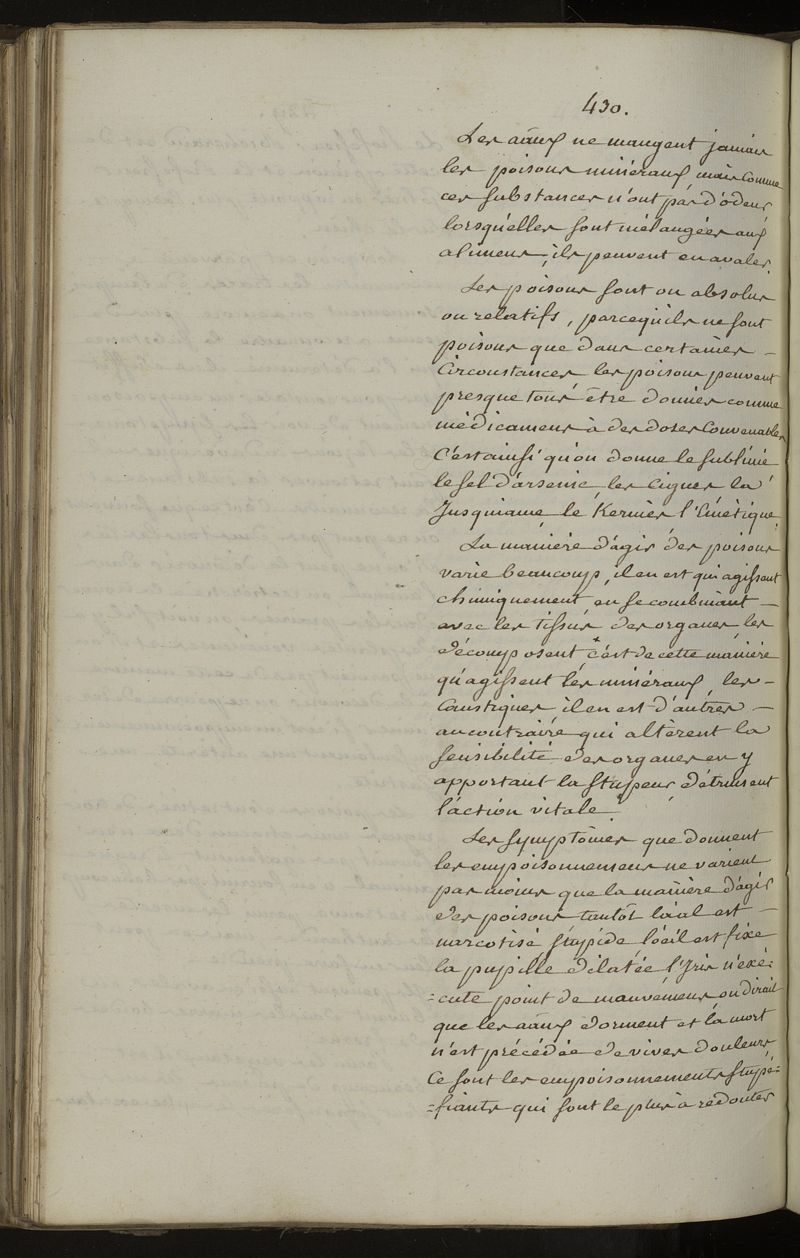 430.
Les aãux ne mangent jamais
les poisons minéraux, mais comme
ces substances n'ont pas d'odeur
lorsqu'elles sont mélangées aux
alimens, ils peuvent en avaler.
Les poisons sont ou absolus
ou relatifs, parcequ'ils ne sont
poisons que dans certaines –
Circonstances les poisons peuvent
presque tous être donnés comme
médicamens à des doses Convenables
C'est ainsi qu'on donne le sublimé
le sel d'arsenic, les ciguës la
Jusquiame le Kermès l'Emétique
La manière d'agir des poisons
varie beaucoup, il en est qui agissent
chimiquement, en se combinant –
avec les tissus des organes, les
décomposent c'est de cette manière
qu'agissent les minéraux, les –
Caustiques, il en est d'autres –
au contraire qui altèrent la
sensibilité des organes en y
apportant la stupeur détruisent
l'action vitale.
Les symptômes que donnent
les empoisonnemens ne varient
pas moins que la manière d'agir
des poisons tantôt l'aãl est –
narcotisé stupide, l'œil est fixe
la pupille dilatée l'Iris n'exé=
=cute point de mouvemens, on dirait
que les aãux dorment et la mort
n'est précédée de vives douleurs
Ce sont les empoisonnements stupé=
=fiants qui sont le plus à redouter